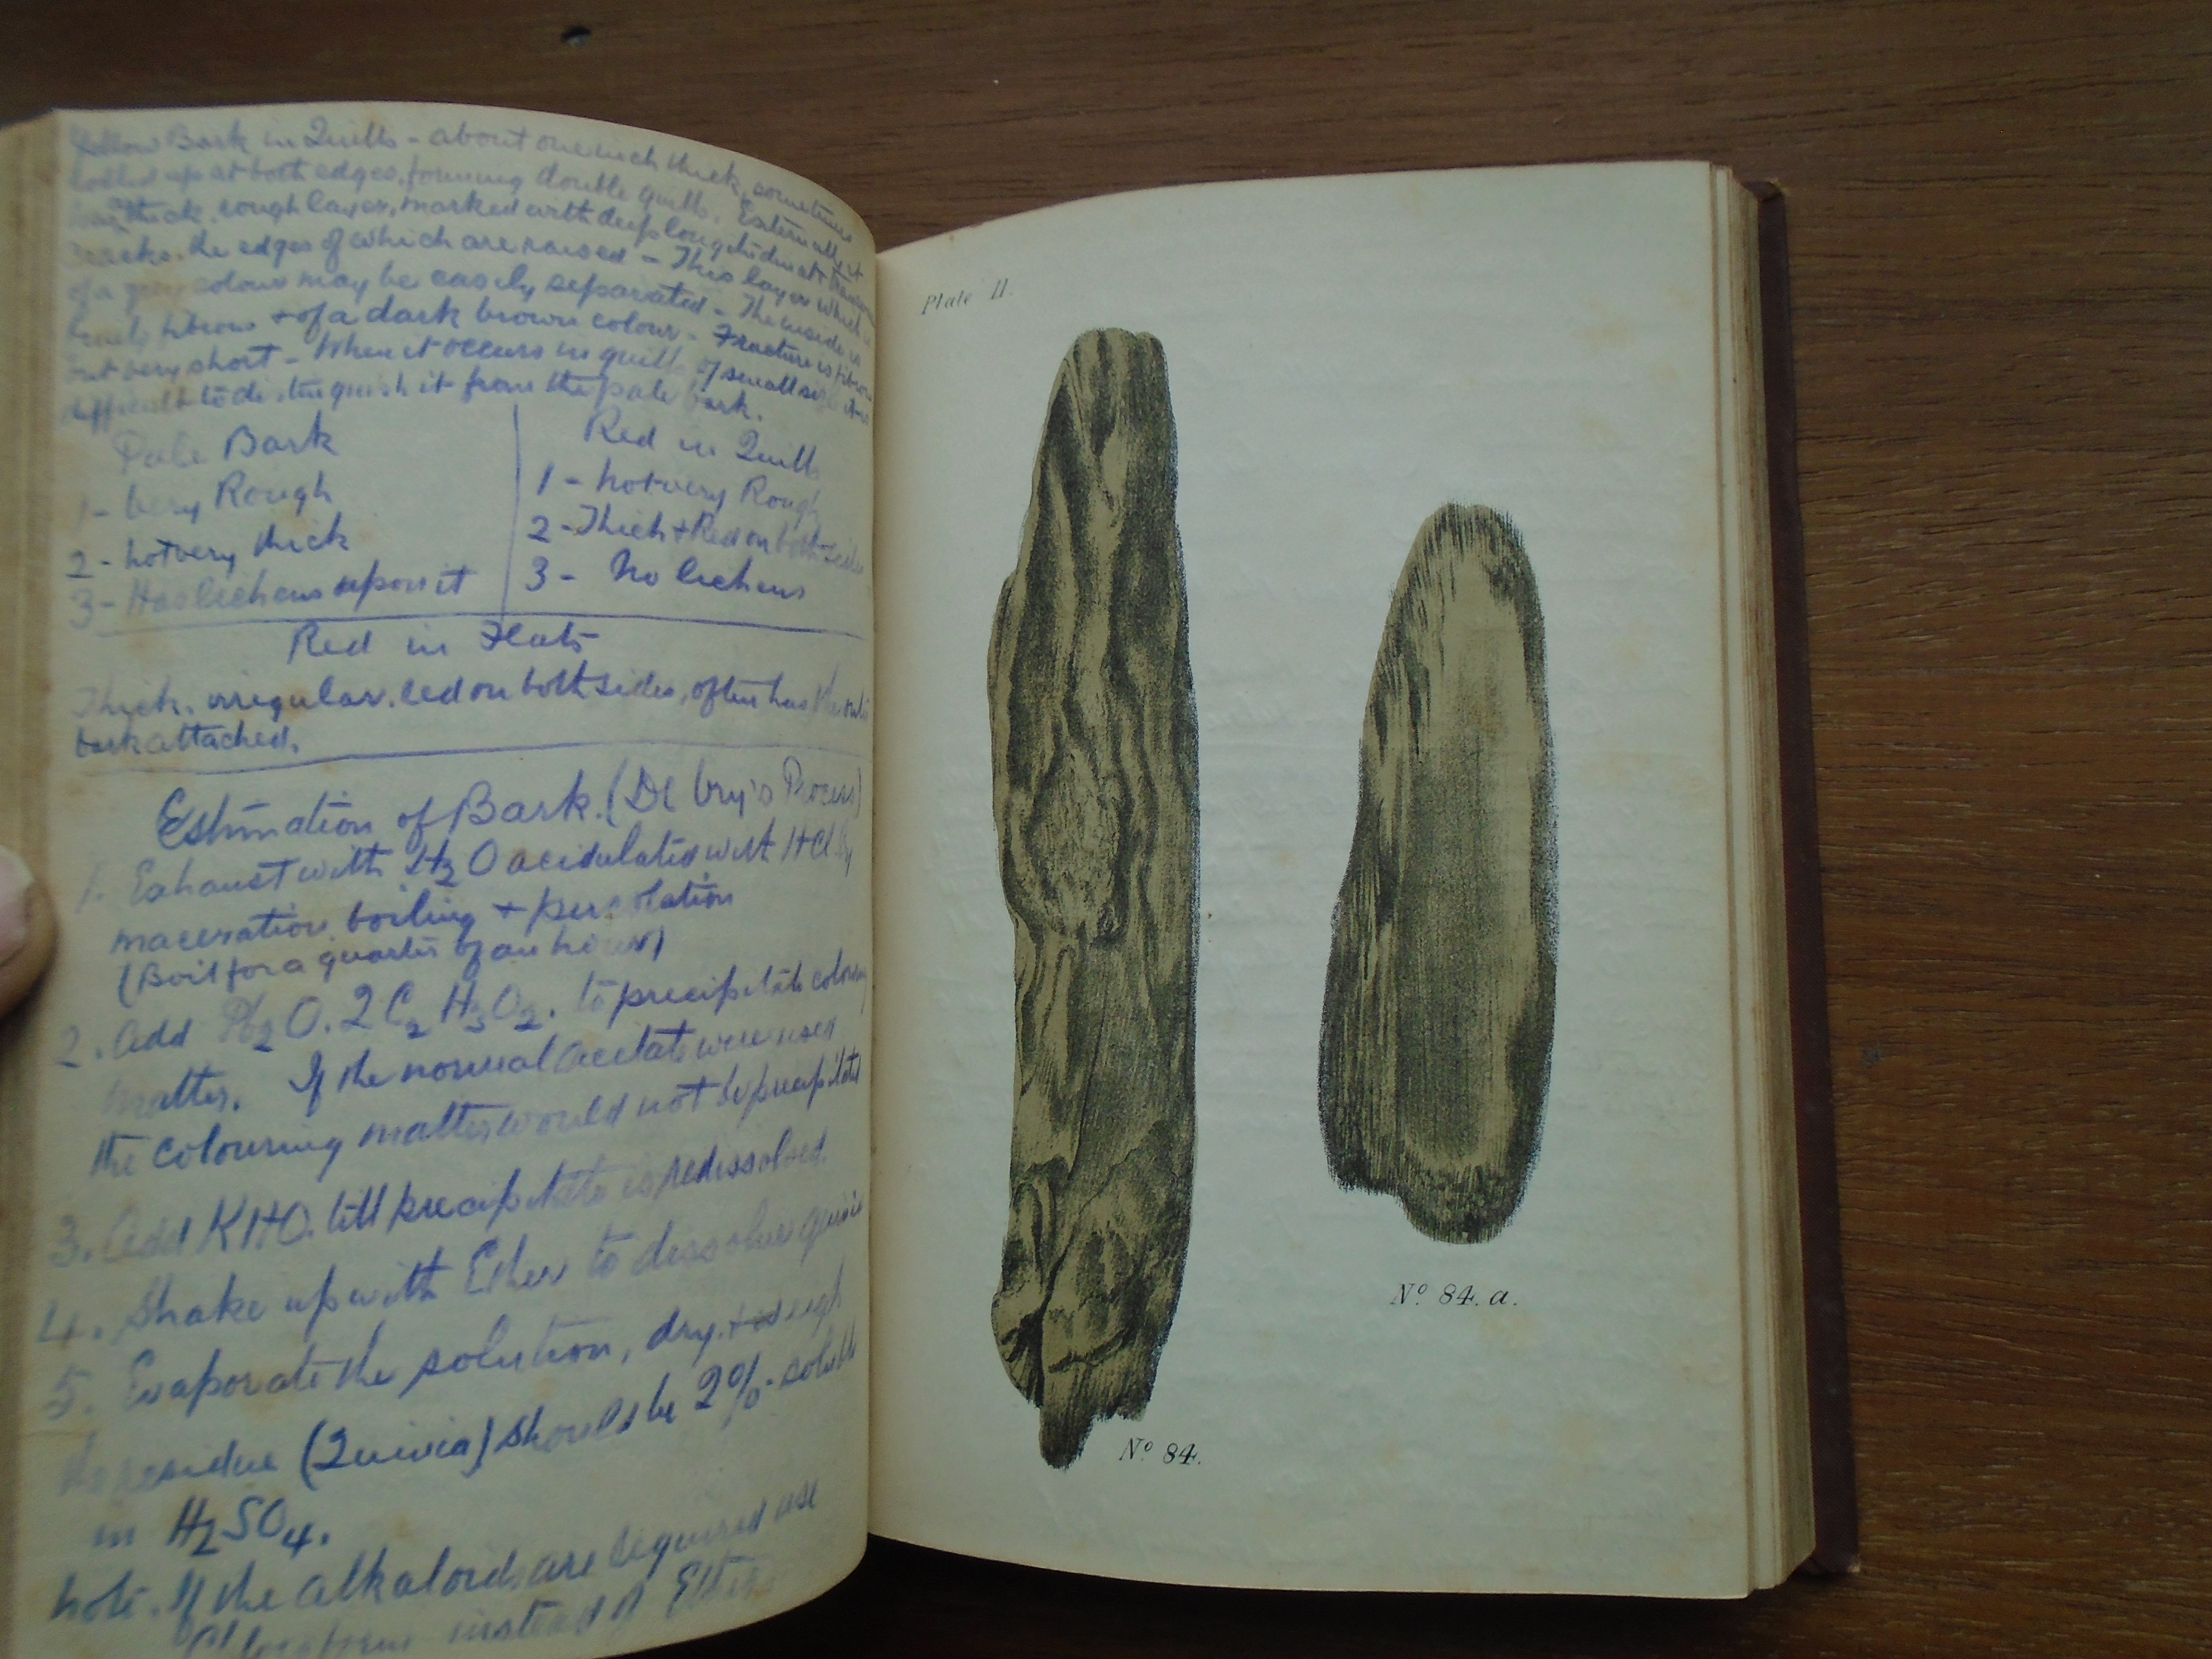 Yellow Bark in Quills - about one inch thick, sometimes
rolled up at both edges, forming double quills. Externally it
has a thick rough layer, marked with deep longitudinal +
cracks, the edges of which are raised - This layer which is
of a grey colour may be easily separated - The inside is
fibrous + of a dark brown colour - Fracture is fibrous
but very short - When it occurs in quills of small size it is
difficult to distinguish it from the pale bark.
Pale Bark
1 - Very Rough
2 - not very thick
3 - Has lichens upon it
Red in Quills
1 - not very Rough
2 - Thick + Red on both sides
3 - No lichens
Red in Flats
Thick, irregular, red on both sides, often has the
bark attached.
Estimation of Bark. (De Vry's Process)
1. Exhaust with H2O acidulated with HCl by
maceration, boiling + percolation
(Boil for a quarter of an hour)
2. Add Pb2O.2C2H3O2. to precipitate colouring
matter. If the normal acetate were used
the colouring matter would not be precipitated
3. Add KHO. till precipitate is redissolved.
4. Shake up with Ether to dissolve quinia
5. Evaporate the solution, dry, + weigh
the residue (Quinia) should be 2% - soluble
in H2SO4.
Note. If the alkaloids are required use
Chloroform instead of Ether
Plate II.
No. 84.
No. 84. a.